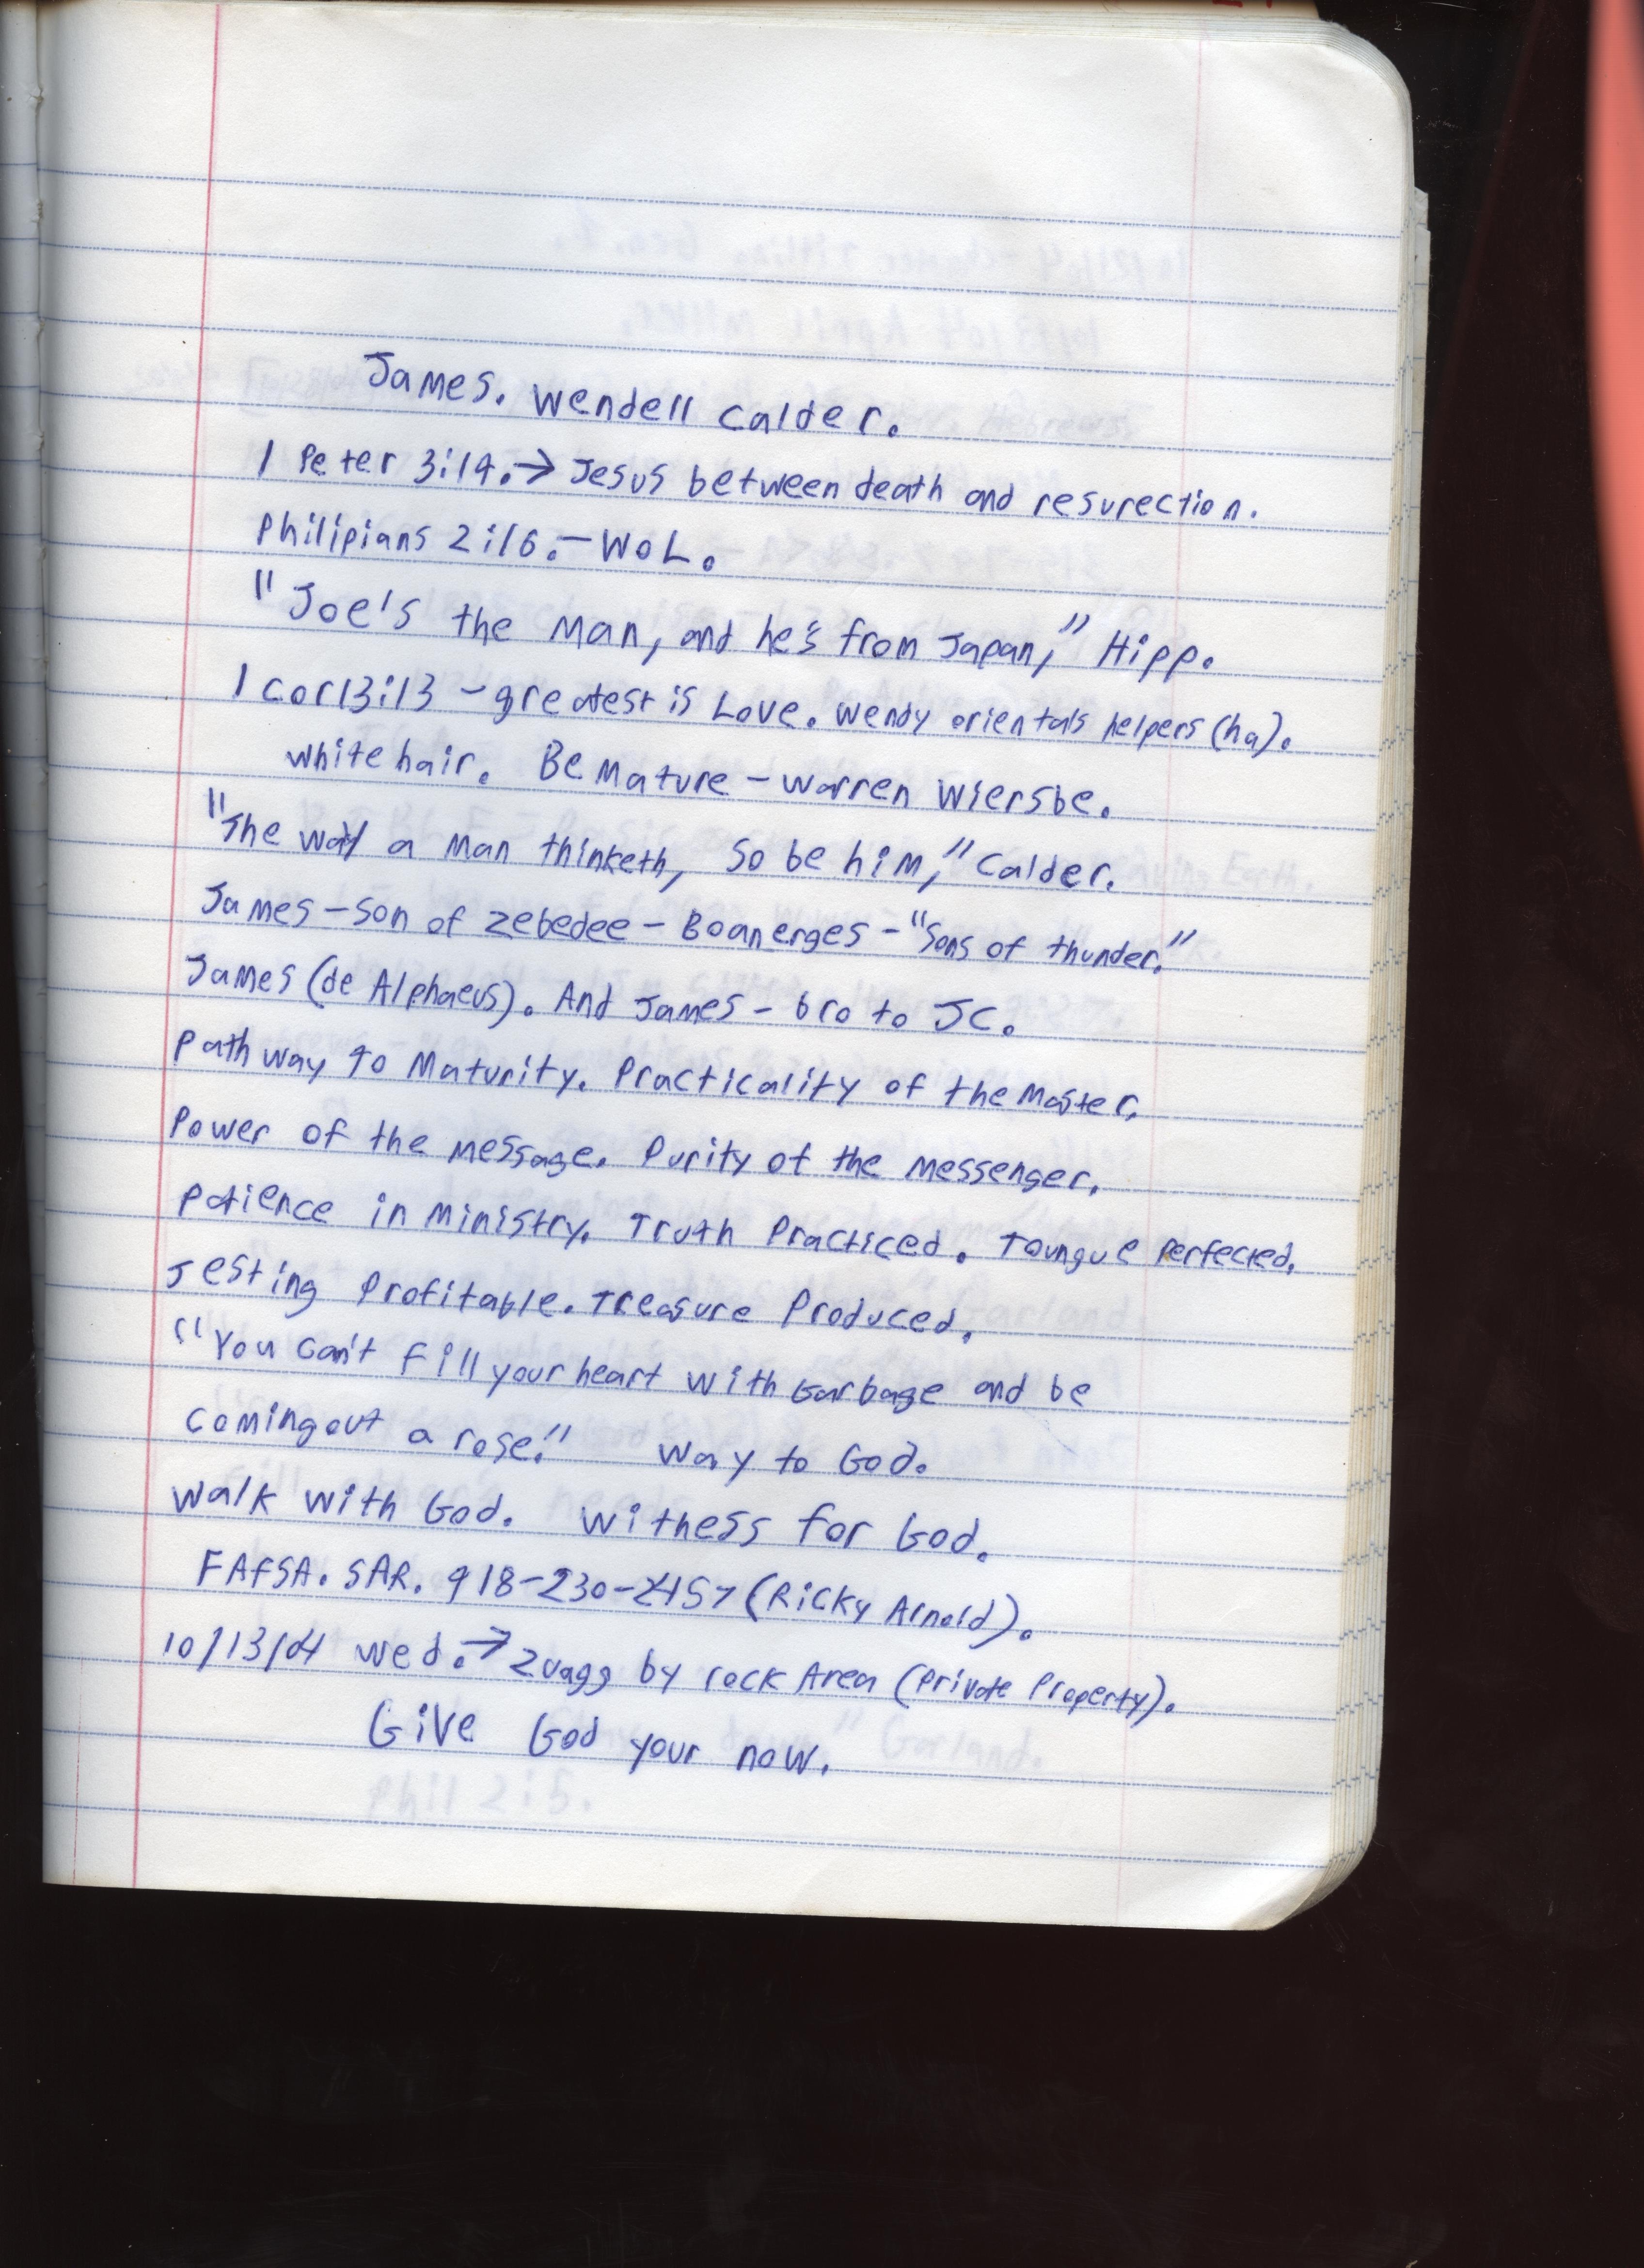 James. Wendell Calder.
1 Peter 3:19.→ Jesus between death and resurection.
Philipians 2:16.- WOL.
"Joe's the man, and he's from Japan," Hipp.
1 Cor 13:13 - greatest is Love. Wendy orientals helpers (ha).
White hair. Be Mature - Warren Wiersbe.
"The way a man thinketh, so be him," Calder.
James - son of Zebedee - Boanerges - "Sons of thunder."
James (de Alphaeus). And James - bro to JC.
Pathway to Maturity. Practicality of the Master.
Power of the message. Purity of the messenger.
Patience in ministry. Truth Practiced. Toungue Perfected.
Testing Profitable. Treasure Produced.
"You can't fill your heart with Garbage and be
coming out a rose." Way to God.
Walk with God. Witness for God.
FAFSA. SAR. 918-230-2457 (Ricky Arnold).
10/13/04 Wed.→ by rock Area (Private Property).
Give God your now.